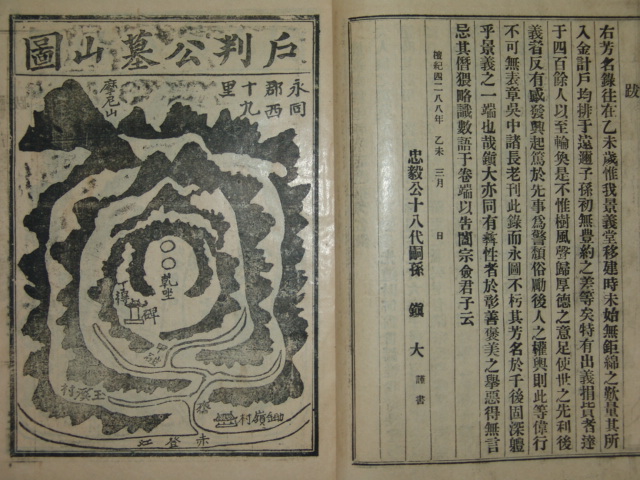 跋
右芳名錄往在乙未歲惟我景義堂移建時未始無鉅綿之歎量其所
入金計戶均排于遠邇子孫初無豊約之差等矣特有出義捐貨者達
于四百餘人以至輪奐是不惟樹風聲歸厚德之意足使世之先利後
義者反有感發興起篤於先事爲警頹俗勵後人之權輿則此等偉行
不可無表章吳中諸長老刊此錄而永圖不朽其芳名於千後固深韙
乎景義之一端也哉鎭大亦同有彜性者於彰善褒美之擧惡得無言
忌其僭猥略識數語于卷端以告闔宗僉君子云
檀紀四二八八年 乙未 三月 日
忠毅公十八代嗣孫 鎭大 謹書
戶判公墓山圖
永同
郡西
十九
里
摩尼山
〇〇乾坐
丁得
碑
玉溪村
嶺村
赤登江